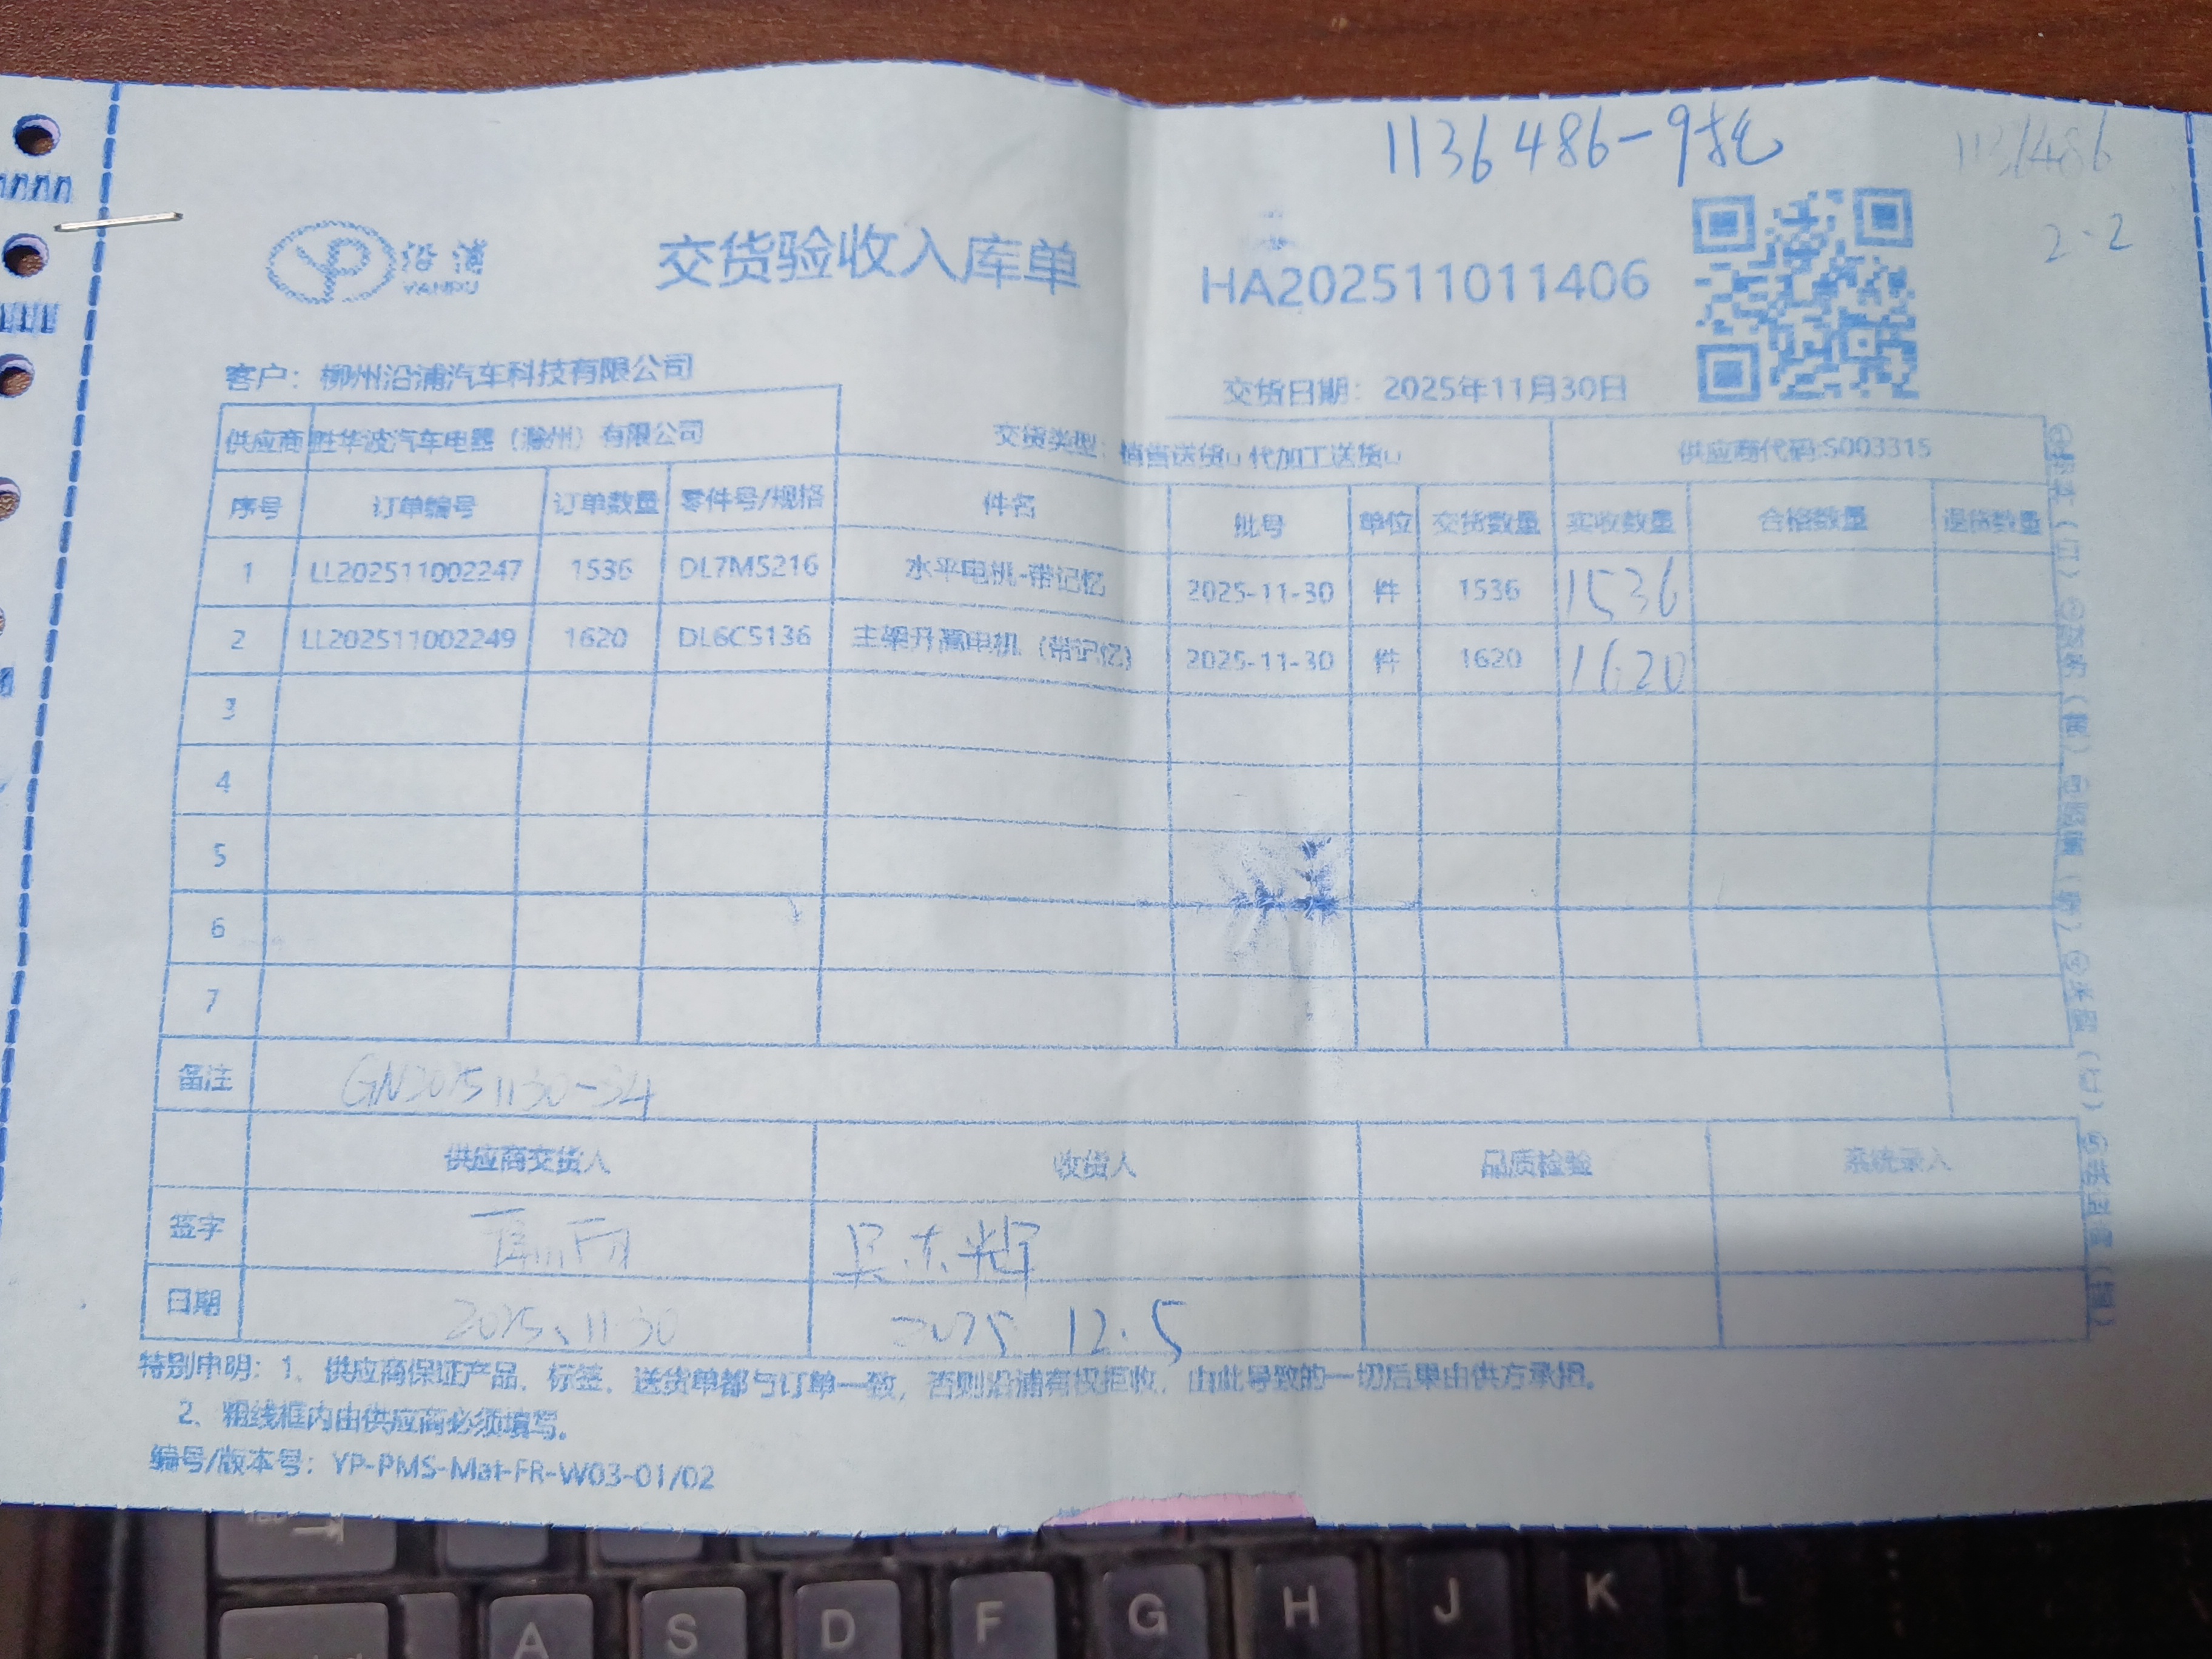 1136486-9托
1131486
2-2
沿浦
YANPU
交货验收入库单
HA202511011406
客户：柳州沿浦汽车科技有限公司
交货日期：2025年11月30日
供应商 胜华波汽车电器（滁州）有限公司 交货类型：销售送货□ 代加工送货□ 供应商代码:S003315
序号 订单编号 订单数量 零件号/规格 件名 批号 单位 交货数量 实收数量 合格数量 退货数量
1 LL202511002247 1536 DL7M5216 水平电机-带记忆 2025-11-30 件 1536 1536
2 LL202511002249 1620 DL6C5136 主架升高电机（带记忆） 2025-11-30 件 1620 1620
3
4
5
6
7
备注 GN20251130-34
供应商交货人 收货人 品质检验 系统录入
签字 吴东辉
日期 2025.11.30 2025 12.5
特别申明：1、供应商保证产品、标签、送货单都与订单一致，否则沿浦有权拒收，由此导致的一切后果由供方承担。
2、粗线框内由供应商必须填写。
编号/版本号：YP-PMS-Mat-FR-W03-01/02
A S D F G H J K L